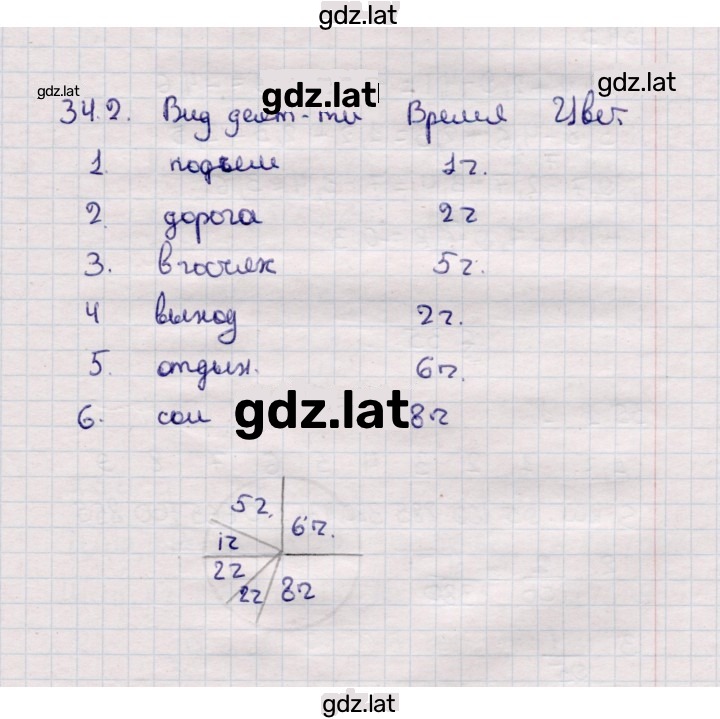 gdz.lat
gdz.lat gdz.lat gdz.lat
34.2. Вид деят-ти Время Цвет
1. подъем 1ч.
2. дорога 2ч
3. в гостях 5ч.
4 выход 2ч.
5. отдых. 6ч.
6. сон 8ч
gdz.lat
5ч. 6ч.
1ч
2ч
2ч 8ч
gdz.lat